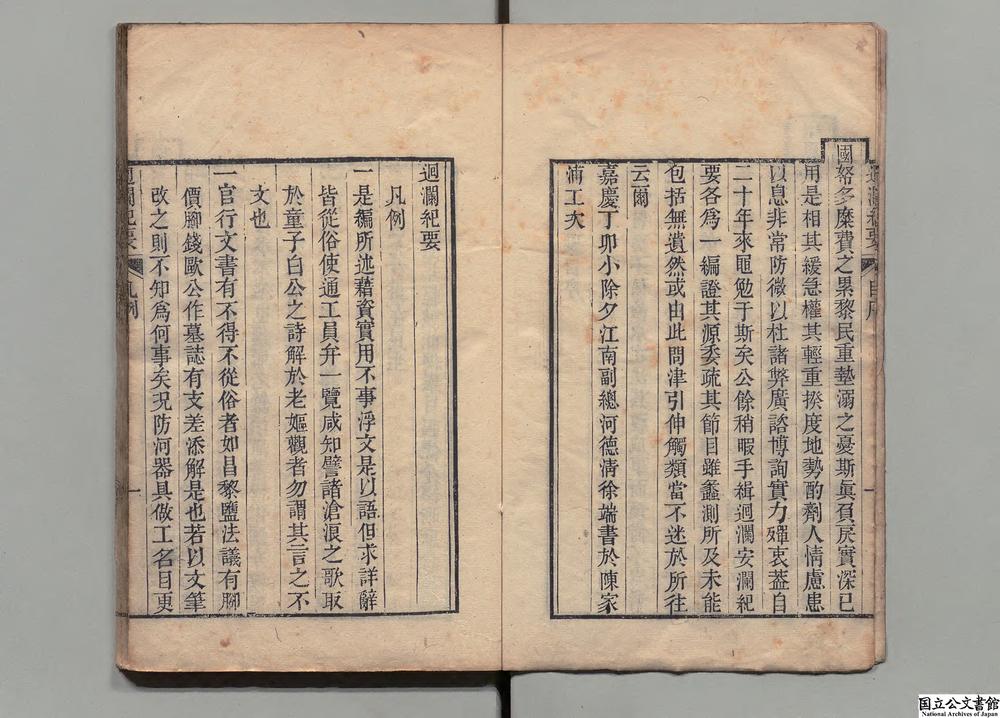 國帑多糜費之累黎民重墊溺之憂斯眞負戾實深已
用是相其緩急權其輕重揆度地勢酌劑人情慮患
以息非常防微以杜諸弊廣諮博詢實力殫衷葢自
二十年來黽勉于斯矣公餘稍暇手緝迴瀾安瀾紀
要各爲一編證其源委疏其節目雖蠡測所及未能
包括無遺然或由此問津引伸觸類當不迷於所往
云爾
嘉慶丁卯小除夕江南副總河德淸徐端書於陳家
浦工次
迴瀾紀要
凡例
一是編所述藉資實用不事浮文是以語但求詳辭
皆從俗使通工員弁一覽咸知譬諸滄浪之歌取
於童子白公之詩解於老嫗觀者勿謂其言之不
文也
一官行文書有不得不從俗者如昌黎鹽法議有腳
價腳錢歐公作墓誌有支差添解是也若以文筆
改之則不知爲何事矣況防河器具做工名目更
迴瀾紀要 凡例 一
国立公文書館
National Archives of Japan